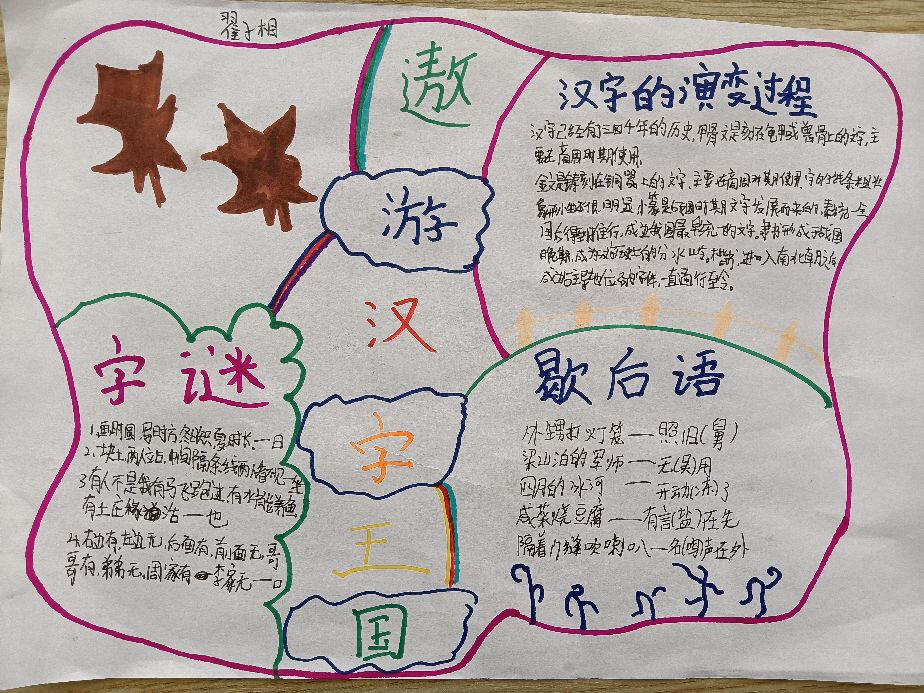 翟子相
遨
游
汉
字
王
国
汉字的演变过程
汉字已经有三四千年的历史,甲骨文是刻在龟甲或兽骨上的文字,主
要在商周时期使用.
金文是铸刻在铜器上的文字,主要在商周时期使用,字的
小篆是战国时期文字发展而来的,秦统一全
国后得到推行,成为我国最早统一的文字,隶书形成于战国
晚期,成为汉字历史上的分水岭。楷书,进入南北朝以后
成为主要地位的字体,一直通行至今。
字谜
1.画时圆,写时方,冬时短,夏时长.一日
2.一块土,两位占,中间隔条线,两人看呢一坐
3.有人不是我,有马飞跑过,有水能养鱼,
有土庄稼活一也
4.右边有,左边无,后面有,前面无,哥
哥有,弟弟无,周家有李家无一口
歇后语
外甥打灯笼——照旧(舅)
梁山泊的军师——无(吴)用
四月的冰河——开动(冻)了
咸菜烧豆腐——有言(盐)在先
隔着门缝吹喇叭——名(鸣)声在外